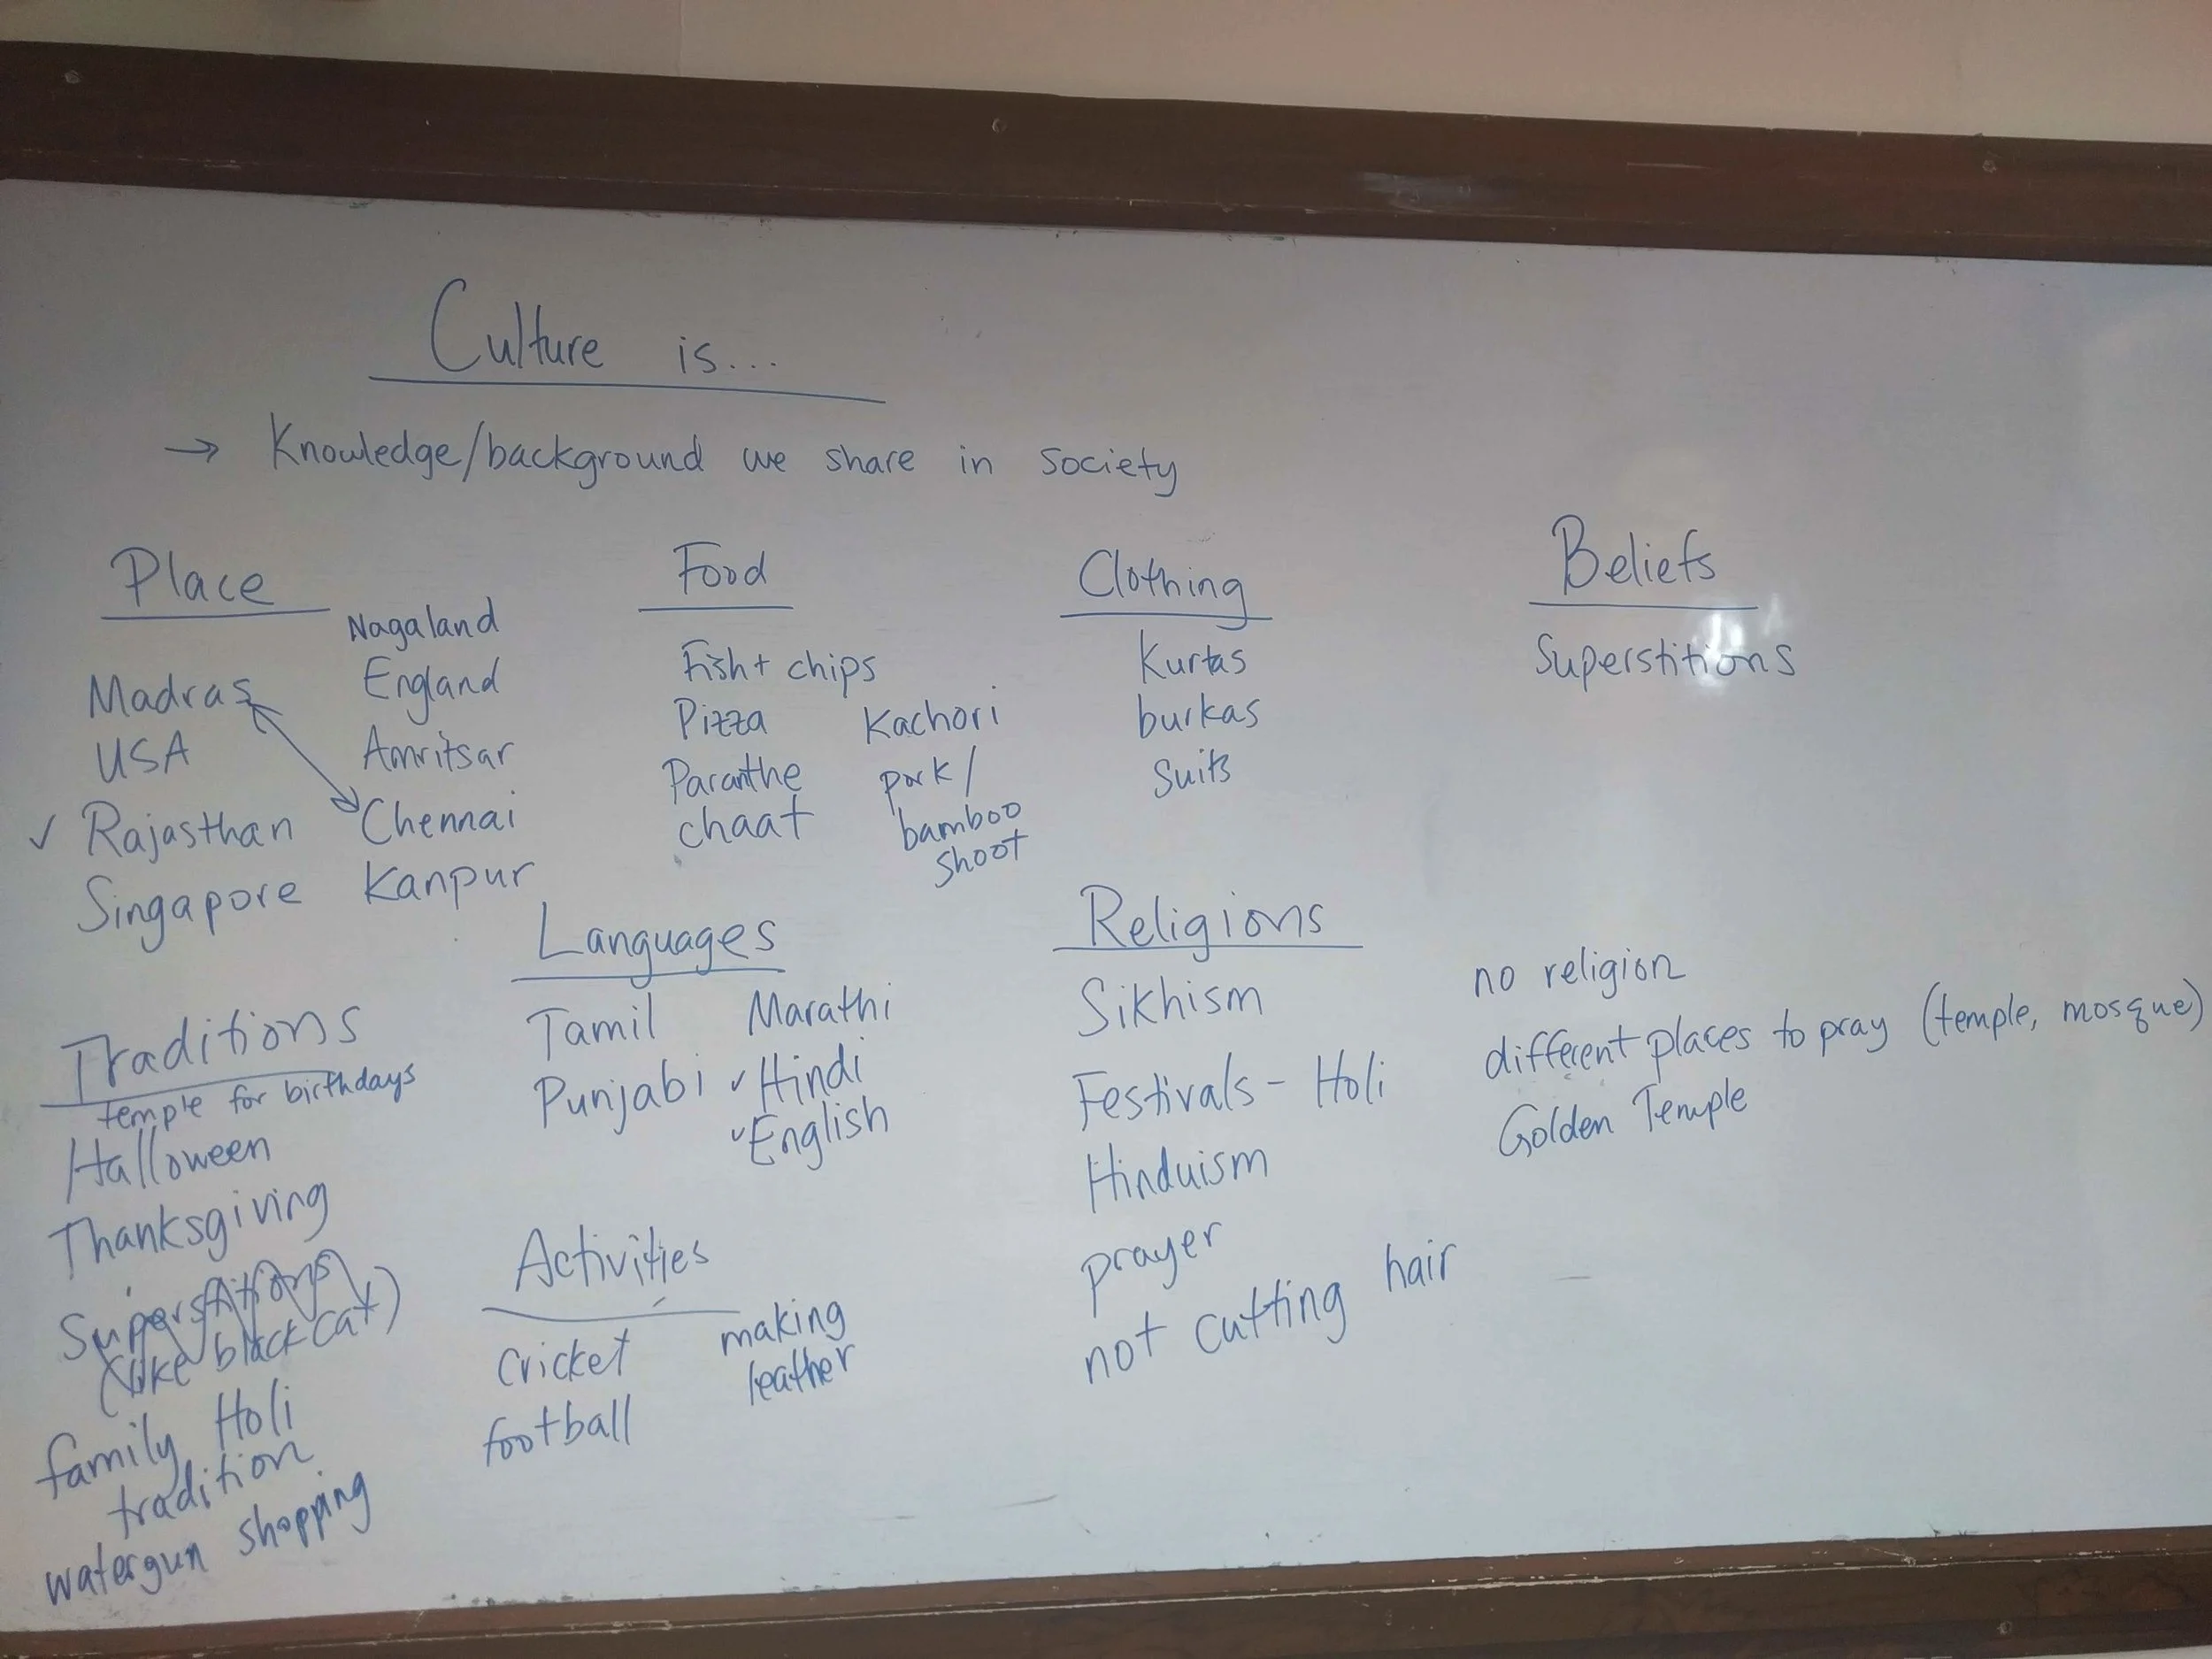 Culture is...
→ Knowledge/background we share in society
Place
Nagaland
Madras
England
USA
Amritsar
✓ Rajasthan
Chennai
Singapore
Kanpur
Food
Fish + chips
Pizza
Kachori
Paranthe
pork/
chaat
bamboo
shoot
Clothing
Kurtas
burkas
Suits
Beliefs
Superstitions
Traditions
temple for birthdays
Halloween
Thanksgiving
Superstitions
(like black cat)
family Holi
tradition
watergun shopping
Languages
Tamil
Marathi
Punjabi
✓ Hindi
✓ English
Activities
Cricket
making
leather
football
Religions
Sikhism
no religion
Festivals - Holi
different places to pray (temple, mosque)
Golden Temple
Hinduism
prayer
not cutting hair